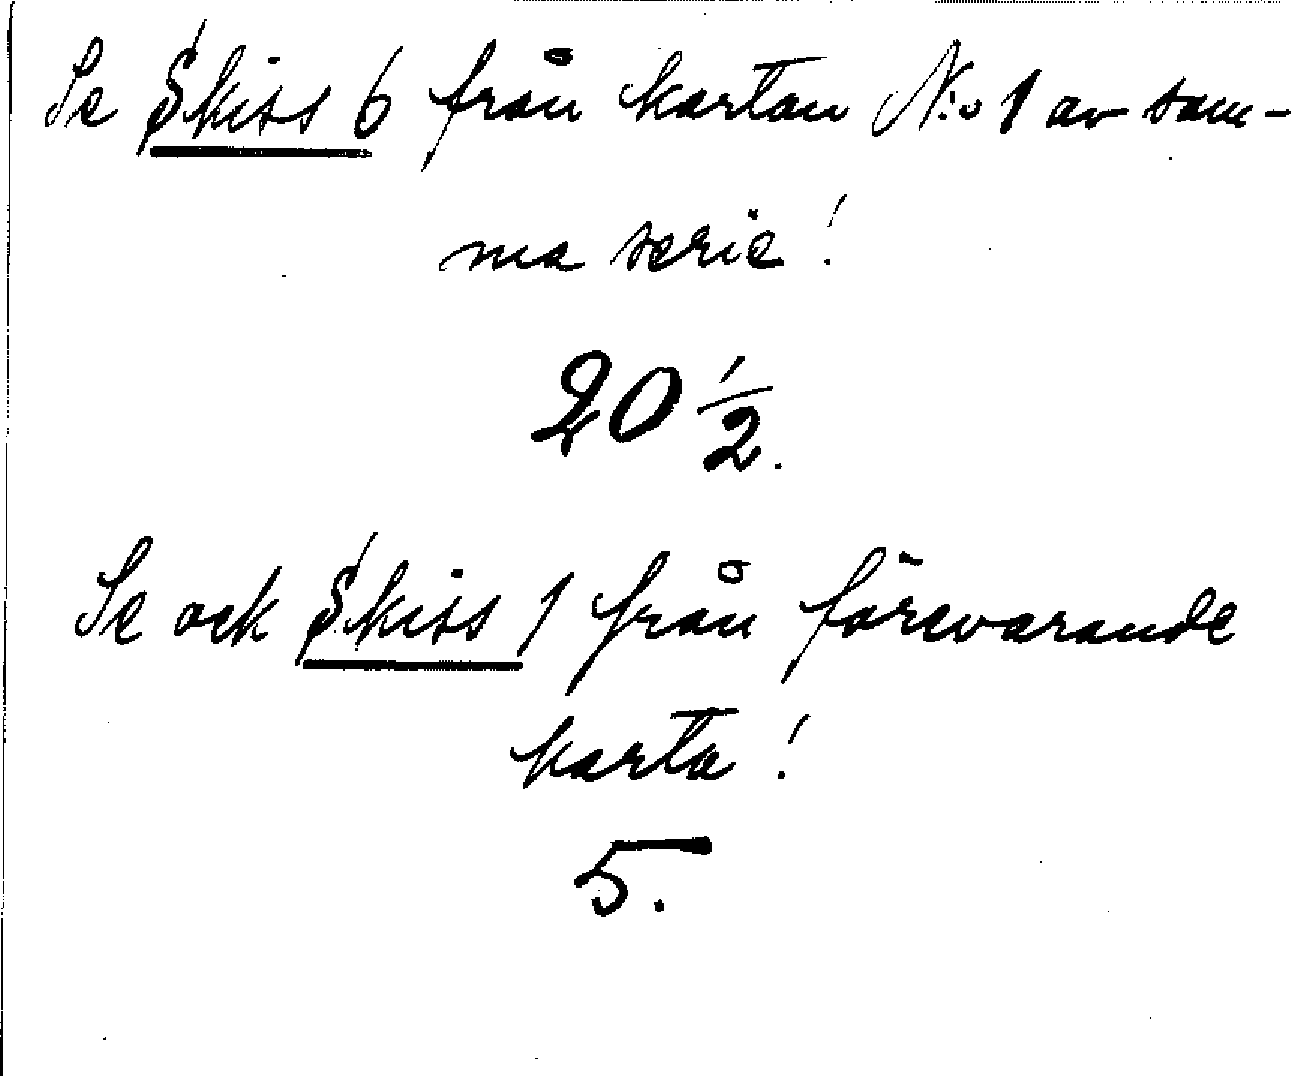 Se Skiss 6 från kartan N:o 1 av sam-
ma serie!
20 1/2.
Se ock Skiss 1 från förevarande
karta!
5.